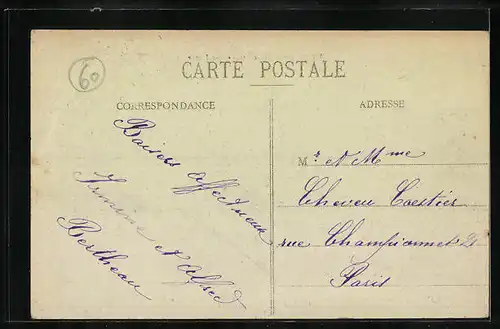 60
CARTE POSTALE
CORRESPONDANCE
Baisers affectueux
Irmine et Alfred
Bertheau
ADRESSE
Mr et Mme
Cheveu Coestier
rue Championnet 21
Paris